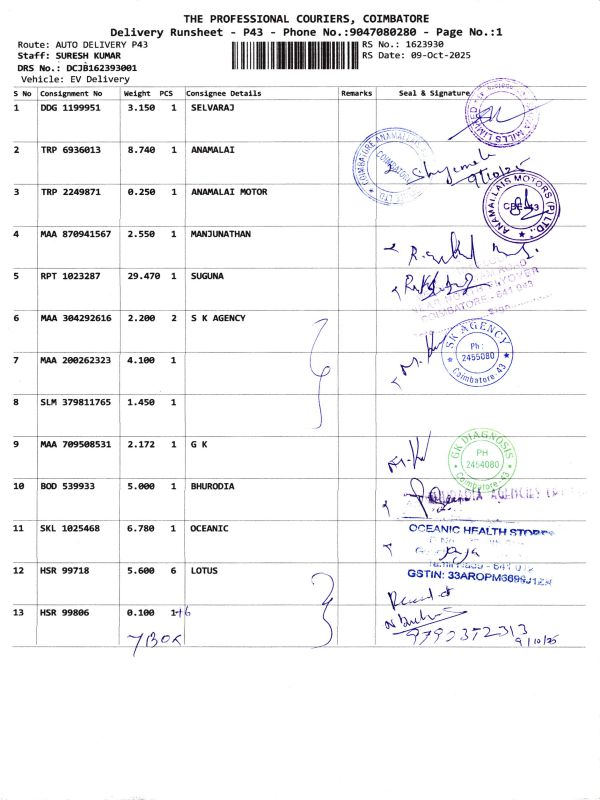 THE PROFESSIONAL COURIERS, COIMBATORE
Delivery Runsheet - P43 - Phone No.:9047080280 - Page No.:1
Route: AUTO DELIVERY P43 RS No.: 1623930
Staff: SURESH KUMAR RS Date: 09-Oct-2025
DRS No.: DCJB162393001
Vehicle: EV Delivery
S No Consignment No Weight PCS Consignee Details Remarks Seal & Signature
1 DDG 1199951 3.150 1 SELVARAJ
MILLS LIMITED
2 TRP 6936013 8.740 1 ANAMALAI
COIMBATORE ANAMALLAIS
COIMBATORE
9/10/25
3 TRP 2249871 0.250 1 ANAMALAI MOTOR
ANAMALLAIS MOTORS (P) LTD.,
CBE-43
4 MAA 870941567 2.550 1 MANJUNATHAN
5 RPT 1023287 29.470 1 SUGUNA
COIMBATORE - 641 043
6 MAA 304292616 2.200 2 S K AGENCY
SK AGENCY
Ph:
2455080
Coimbatore-43
7 MAA 200262323 4.100 1
8 SLM 379811765 1.450 1
9 MAA 709508531 2.172 1 G K
GK DIAGNOSIS
PH
2454080
Coimbatore-43
10 BOD 539933 5.000 1 BHURODIA
AGENCIES
11 SKL 1025468 6.780 1 OCEANIC
OCEANIC HEALTH STORES
12 HSR 99718 5.600 6 LOTUS
GSTIN: 33AROPM6699J1ZN
13 HSR 99806 0.100 1+6
7 BOX
9792372313
9/10/25